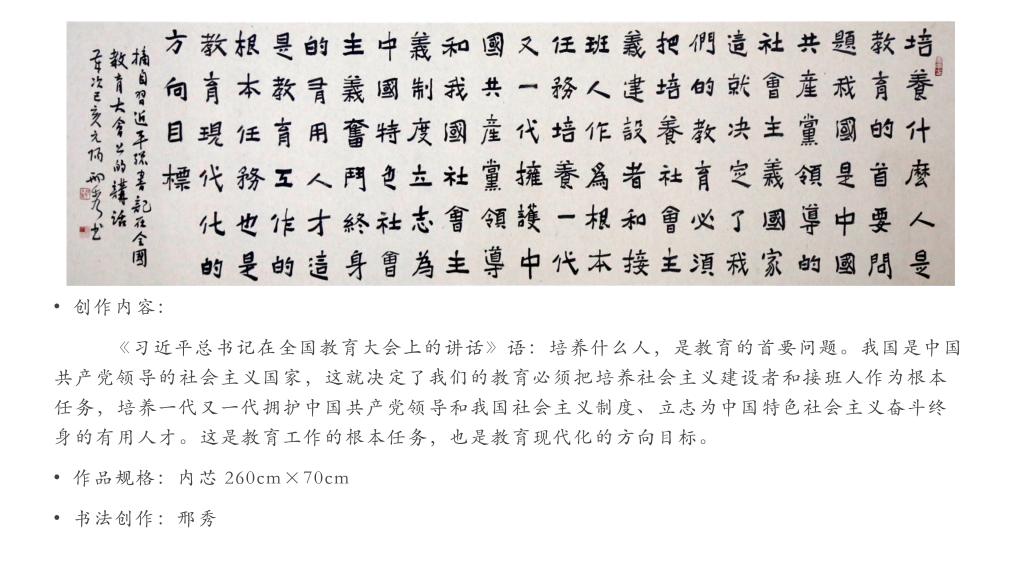 培養什麼人是
教育的首要問
題我國是中國
共產黨領導的
社會主義國家
這就决定了我
們的教育必須
把培養社會主
義建設者和接
班人作爲根本
任務培養一代
又一代擁護中
國共產黨領導
和我國社會主
義制度立志為
中國特色社會
主義奮鬥終身
的有用人才這
是教育工作的
根本任務也是
教育現代化的
方向目標
摘自習近平總書記在全國
教育大會上的講話
次己亥邢秀书
• 创作内容：
《习近平总书记在全国教育大会上的讲话》语：培养什么人，是教育的首要问题。我国是中国
共产党领导的社会主义国家，这就决定了我们的教育必须把培养社会主义建设者和接班人作为根本
任务，培养一代又一代拥护中国共产党领导和我国社会主义制度、立志为中国特色社会主义奋斗终
身的有用人才。这是教育工作的根本任务，也是教育现代化的方向目标。
• 作品规格：内芯 260cm×70cm
• 书法创作：邢秀